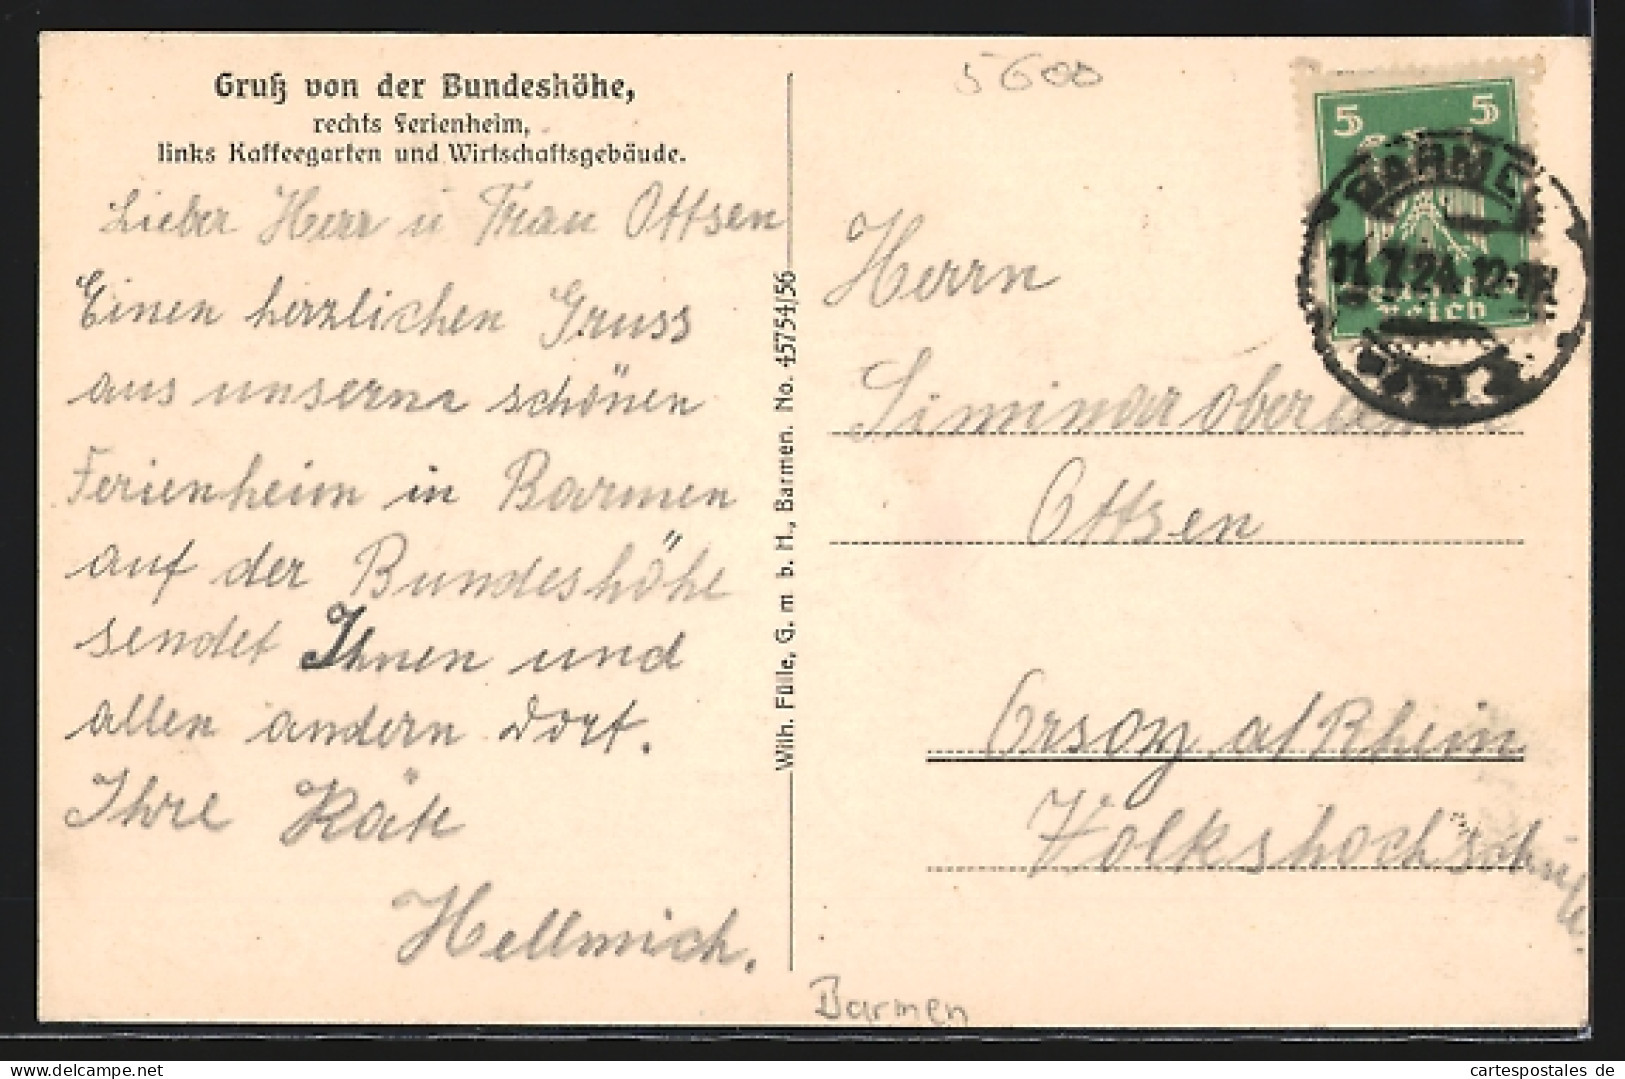 Gruß von der Bundeshöhe,
rechts Ferienheim,
links Kaffeegarten und Wirtschaftsgebäude.
Lieber Herr u Frau Ottsen
Einen herzlichen Gruss
aus unserm schönen
Ferienheim in Barmen
auf der Bundeshöhe
sendet Ihnen und
allen andern dort.
Ihre Käte
Hellmich.
Wilh. Fülle, G. m b. H., Barmen. No. 45754/56
5600
5 5
BARMEN
11.7.24. 12-1
reich
Herrn
Siminaroberlehrer
Ottsen
Orsoy a/Rhein
Volkshochschule.
Barmen
www.oldthing.net
cartespostales.de